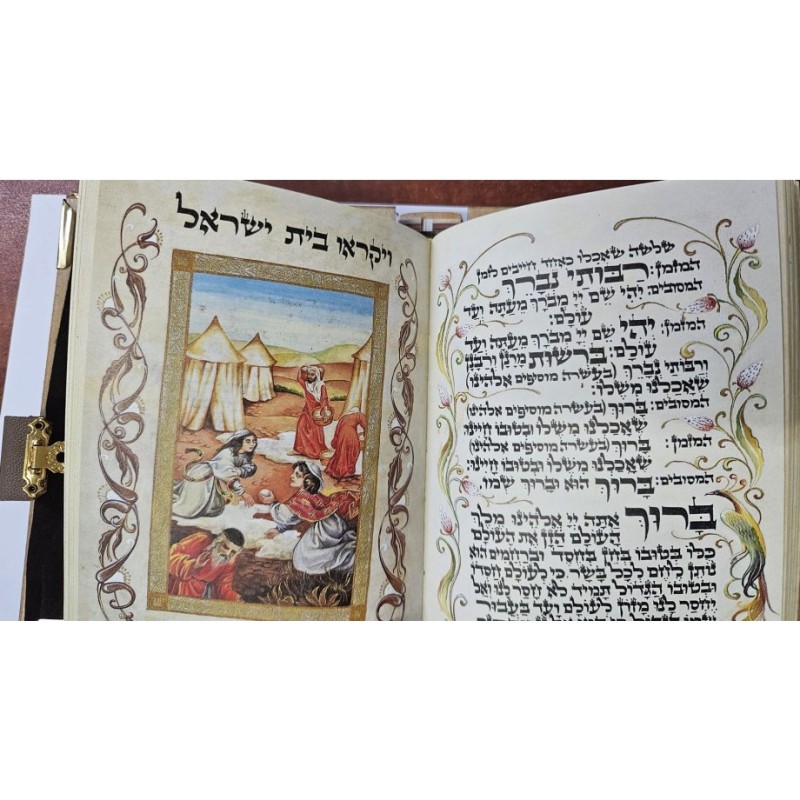 שלשה שאכלו כאחד חייבים לזמן
המזמן: רַבּוֹתַי נְבָרֵךְ
המסובים: יְהִי שֵׁם יְיָ מְבֹרָךְ מֵעַתָּה וְעַד
עוֹלָם:
המזמן: יְהִי שֵׁם יְיָ מְבֹרָךְ מֵעַתָּה וְעַד
עוֹלָם: בִּרְשׁוּת מָרָנָן וְרַבָּנָן
וְרַבּוֹתַי נְבָרֵךְ (בעשרה מוסיפים אלהינו)
שֶׁאָכַלְנוּ מִשֶּׁלּוֹ:
המסובים: בָּרוּךְ (בעשרה מוסיפים אלהינו)
שֶׁאָכַלְנוּ מִשֶּׁלּוֹ וּבְטוּבוֹ חָיִינוּ:
המזמן: בָּרוּךְ (בעשרה מוסיפים אלהינו)
שֶׁאָכַלְנוּ מִשֶּׁלּוֹ וּבְטוּבוֹ חָיִינוּ:
המסובים: בָּרוּךְ הוּא וּבָרוּךְ שְׁמוֹ.
בָּרוּךְ אַתָּה יְיָ אֱלֹהֵינוּ מֶלֶךְ
הָעוֹלָם הַזָּן אֶת הָעוֹלָם
כֻּלּוֹ בְּטוּבוֹ בְּחֵן בְּחֶסֶד וּבְרַחֲמִים הוּא
נוֹתֵן לֶחֶם לְכָל בָּשָׂר, כִּי לְעוֹלָם חַסְדּוֹ
וּבְטוּבוֹ הַגָּדוֹל תָּמִיד לֹא חָסַר לָנוּ וְאַל
יֶחְסַר לָנוּ מָזוֹן לְעוֹלָם וָעֶד בַּעֲבוּר
ויקראו בית ישראל